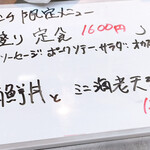 限定メニュー
盛り 定食 1600円
ソーセージ ポークソテー、サラダ
海鮮丼 と ミニ海老天